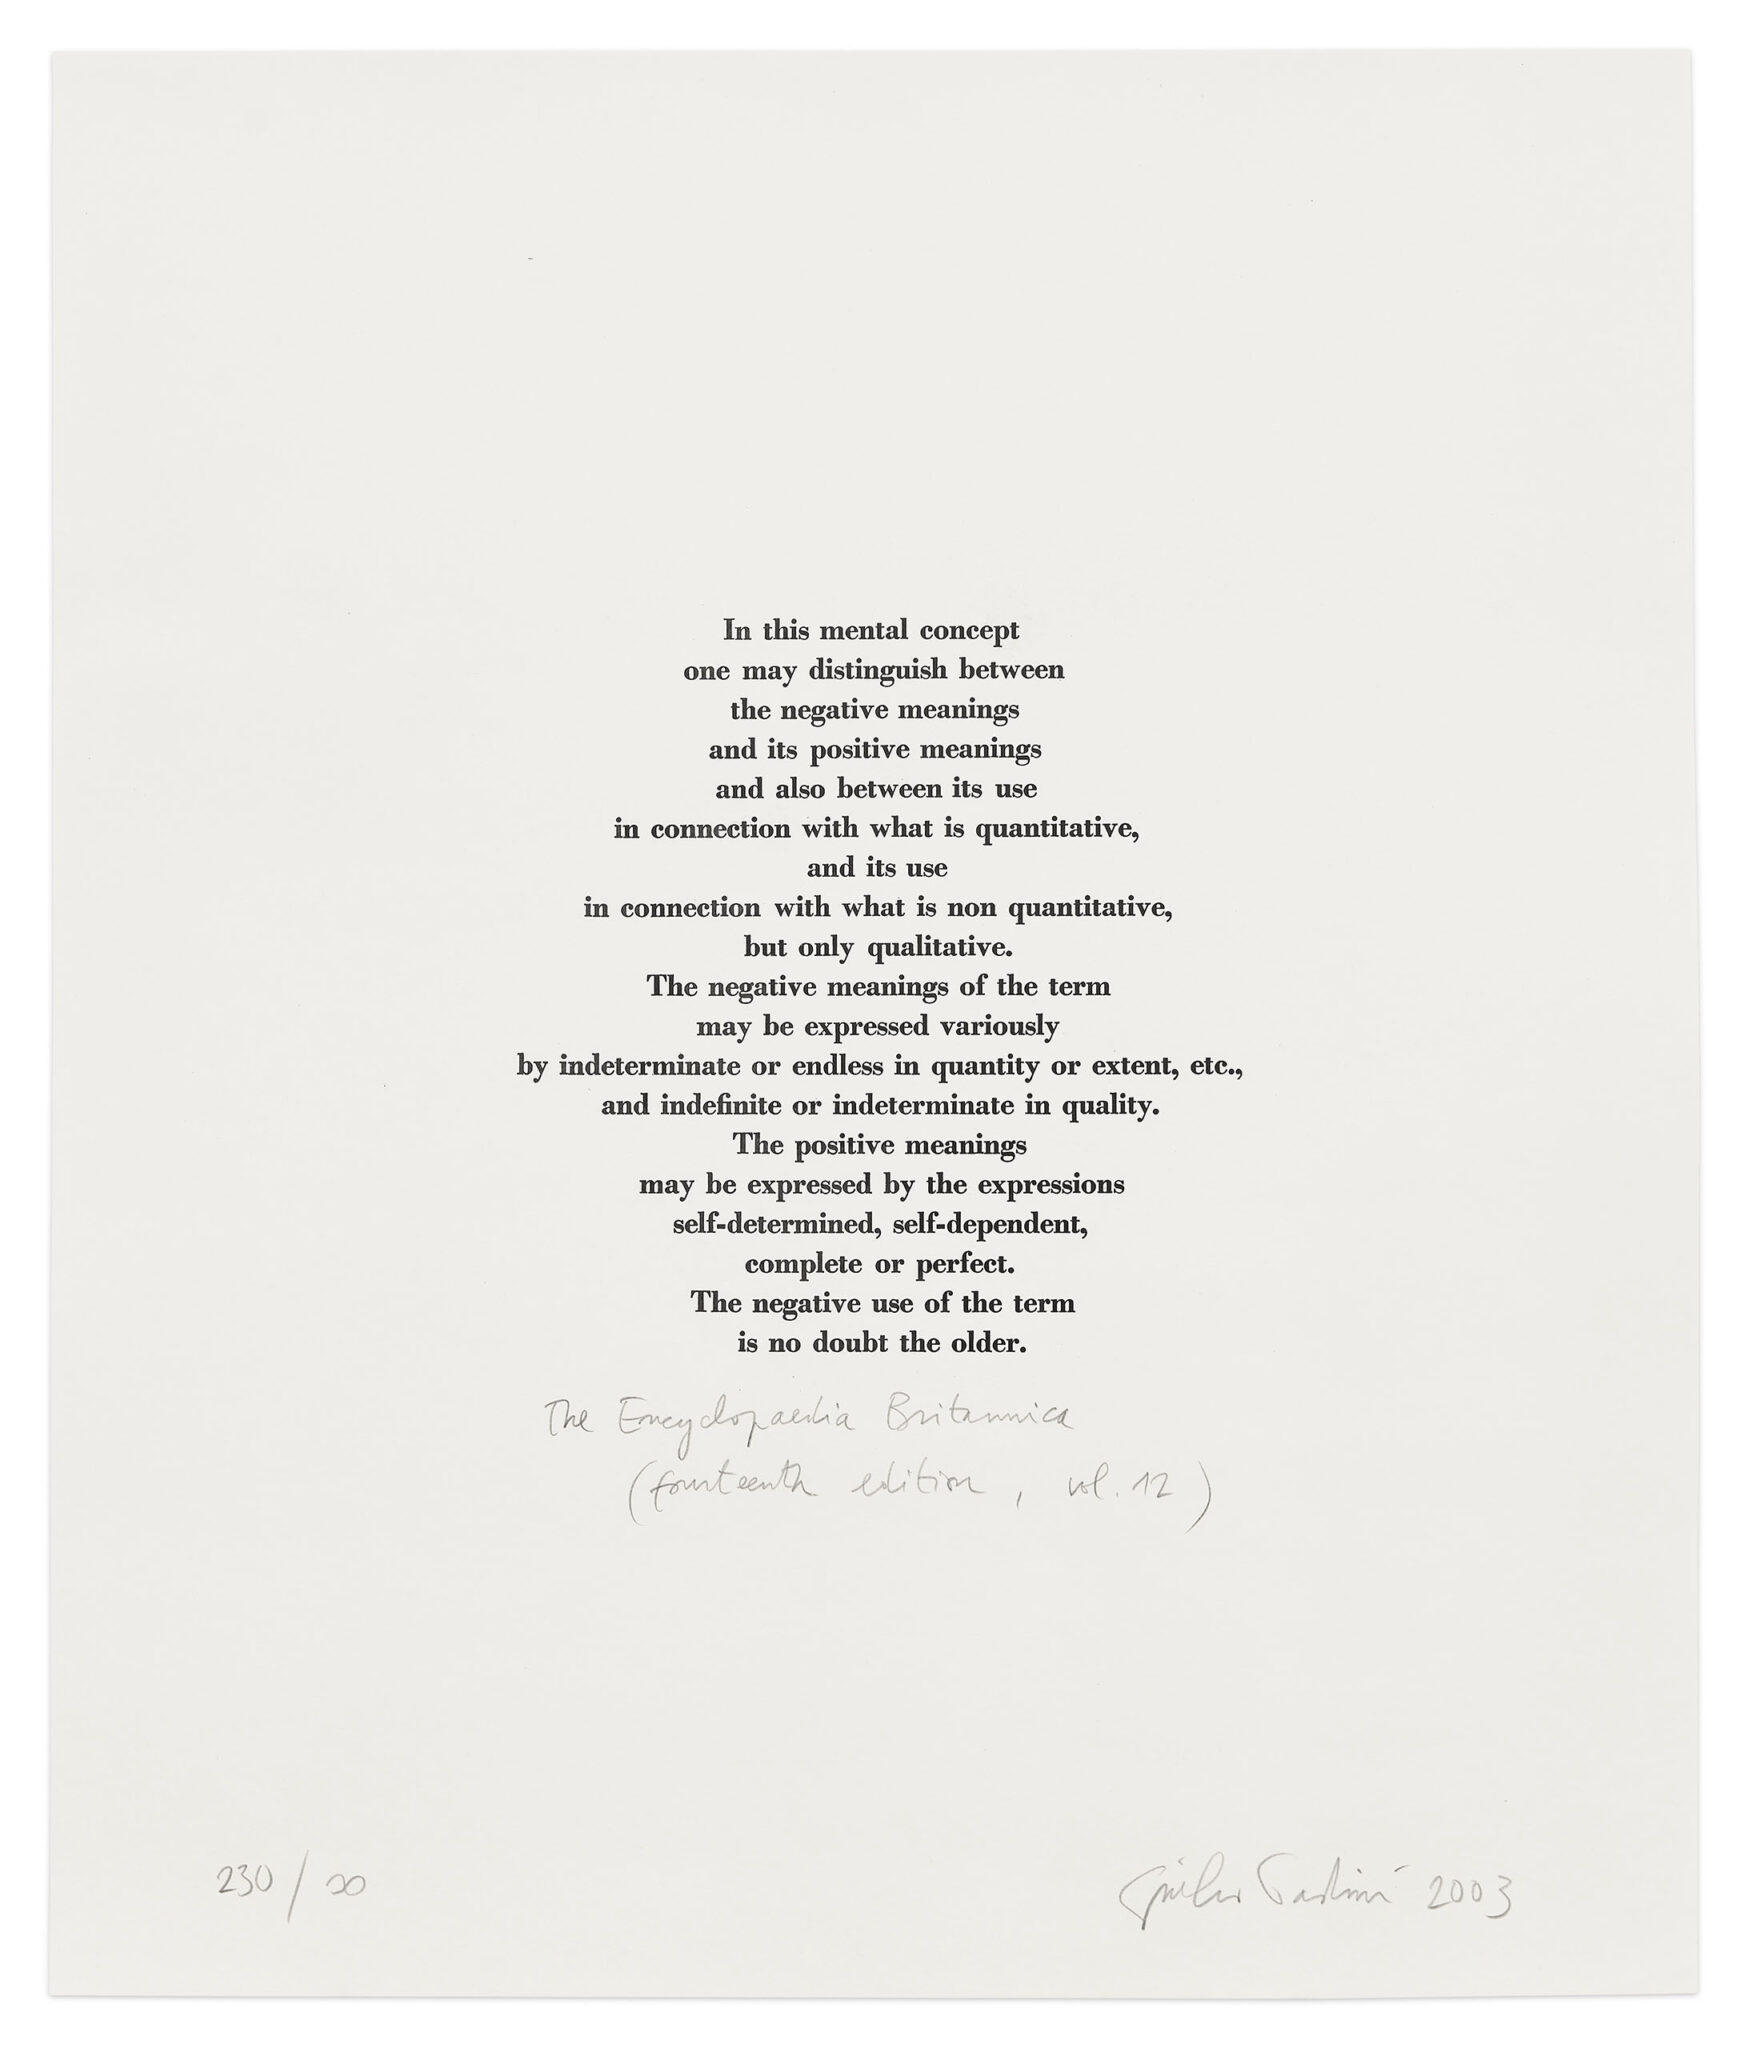 In this mental concept
one may distinguish between
the negative meanings
and its positive meanings
and also between its use
in connection with what is quantitative,
and its use
in connection with what is non quantitative,
but only qualitative.
The negative meanings of the term
may be expressed variously
by indeterminate or endless in quantity or extent, etc.,
and indefinite or indeterminate in quality.
The positive meanings
may be expressed by the expressions
self-determined, self-dependent,
complete or perfect.
The negative use of the term
is no doubt the older.
The Encyclopaedia Britannica
(fourteenth edition, vol. 12)
230/∞
Giulio Paolini 2003